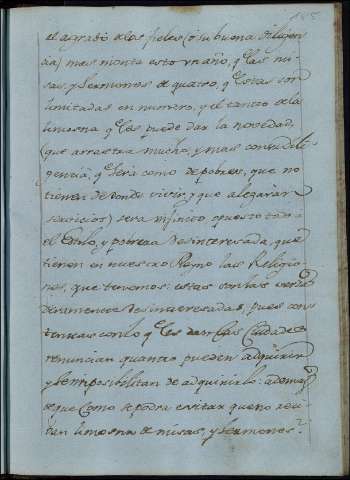 145
el agrado de los fieles (o su buena diligen
cia) mas monta esto un año, q̃ las mi-
sas, y sermones de quatro, q̃ estas son
limitadas en numero, y el tanto de la
limosna q̃ les puede dar la novedad,
(que arrastra mucho, y mas con su dili
gencia, q̃ será como de pobres, que no
tienen de donde vivir, y que alegarán
servicios) sera infinito, opuesto todo a
el estilo, y pobreza desinteresada, que
tienen en nuestro Reyno las Religio-
nes, que tenemos: estas son las verda
deramente desinteresadas, pues con
tentas con lo q̃ les dan las Ciudades
renuncian quanto pueden adquirir
y se imposibilitan de adquirirlo: ademas
de que como se podra evitar que no reci
ban limosna de misas, y sermones?